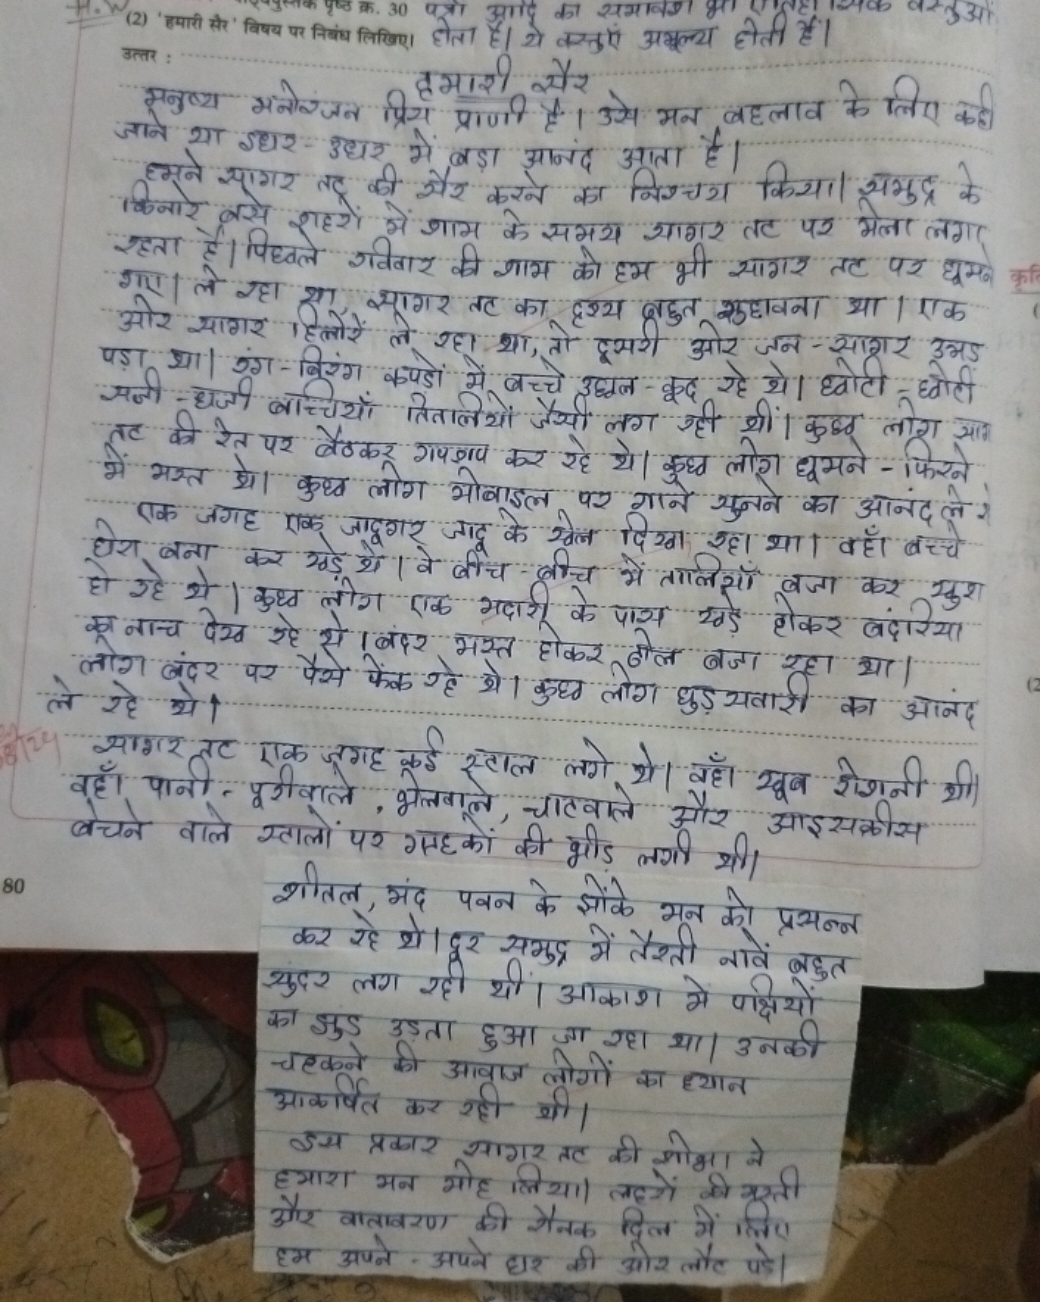 पाठ्यपुस्तक पृष्ठ क्र. 30
(2) 'हमारी सैर' विषय पर निबंध लिखिए।
होता है। ये वस्तुएँ अमूल्य होती हैं।
उत्तर :
हमारी सैर
मनुष्य मनोरंजन प्रिय प्राणी है। उसे मन बहलाव के लिए कही
जाने या इधर-उधर में बड़ा आनंद आता है।
हमने सागर तट की सैर करने का निश्चय किया। समुद्र के
किनारे बसे शहरों में शाम के समय सागर तट पर मेला लगा
रहता है। पिछले रविवार की शाम को हम भी सागर तट पर घूमने
गए। ले रहा था, सागर तट का दृश्य बहुत सुहावना था। एक
ओर सागर हिलोरें ले रहा था, तो दूसरी ओर जन-सागर उमड़
पड़ा था। रंग-बिरंग कपडों में बच्चे उछल-कूद रहे थे। छोटी-छोटी
सजी-धजी बच्चियाँ तितलियों जैसी लग रही थीं। कुछ लोग
तट की रेत पर बैठकर गपशप कर रहे थे। कुछ लोग घूमने-फिरने
में मस्त थे। कुछ लोग मोबाइल पर गाने सुनने का आनंद ले
एक जगह एक जादूगर जादू के खेल दिखा रहा था। वहाँ बच्चे
घेरा बना कर खड़े थे। वे बीच-बीच में तालियाँ बजा कर खुश
हो रहे थे। कुछ लोग एक मदारी के पास खड़े होकर बंदरिया
का नाच देख रहे थे। बंदर मस्त होकर ढोल बजा रहा था।
लोग बंदर पर पैसे फेंक रहे थे। कुछ लोग घुड़सवारी का आनंद
ले रहे थे।
सागर तट एक जगह कई स्टाल लगे थे। वहाँ खूब रोशनी थी।
वहाँ पानी-पूरीवाले, भेलवाले, चाटवाले और आइसक्रीम
बेचने वाले स्टालों पर ग्राहकों की भीड़ लगी थी।
80
शीतल, मंद पवन के झोंके मन को प्रसन्न
कर रहे थे। दूर समुद्र में तैरती नावें बहुत
सुंदर लग रही थीं। आकाश में पक्षियों
का झुंड उड़ता हुआ जा रहा था। उनकी
चहकने की आवाज लोगों का ध्यान
आकर्षित कर रही थी।
इस प्रकार सागर तट की शोभा ने
हमारा मन मोह लिया। लहरों की मस्ती
और वातावरण की रौनक दिल में लिए
हम अपने-अपने घर की ओर लौट पड़े।